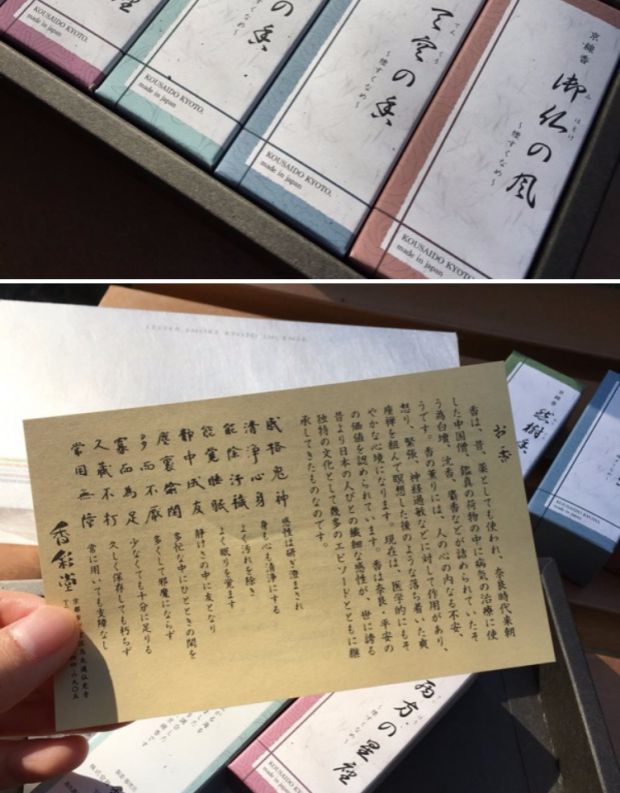 の香
KOUSAIDO KYOTO.
made in japan
天空の香
～煙すくなめ～
KOUSAIDO KYOTO.
made in japan
京線香
御仏の風
みほとけ
～煙すくなめ～
KOUSAIDO KYOTO.
made in japan
お香
香は、昔、薬としても使われ、奈良時代来朝
した中国僧、鑑真の荷物の中に病気の治療に使
う為白檀、沈香、麝香などが詰められていたそ
うです。香の薫りには、人の心の内なる不安、
怒り、緊張、神経過敏などに対して作用があり、
座禅を組んで瞑想した後のような落ち着いた爽
やかな心境になります。現在は、医学的にもそ
の価値を認められています。香は奈良・平安の
昔より日本の人びとの繊細な感性が、世に誇る
独特の文化として幾多のエピソードとともに継
承してきたものなのです。
感格鬼神 感性は研ぎ澄まされ
清浄心身 身も心も清浄にする
能除汚穢 よく汚れを除き
能覚睡眠 よく眠りを覚ます
静中成友 静けさの中に友となり
塵裏偸閑 多忙な中にひとときの閑を
多而不厭 多くして邪魔にならず
寡而為足 少なくても十分に足りる
久蔵不朽 久しく保存しても朽らず
常用無障 常に用いても支障なし
香彩堂
京線香
樹香
西方の星座
～煙すくなめ～
KOUSAIDO KYOTO.
made in japan